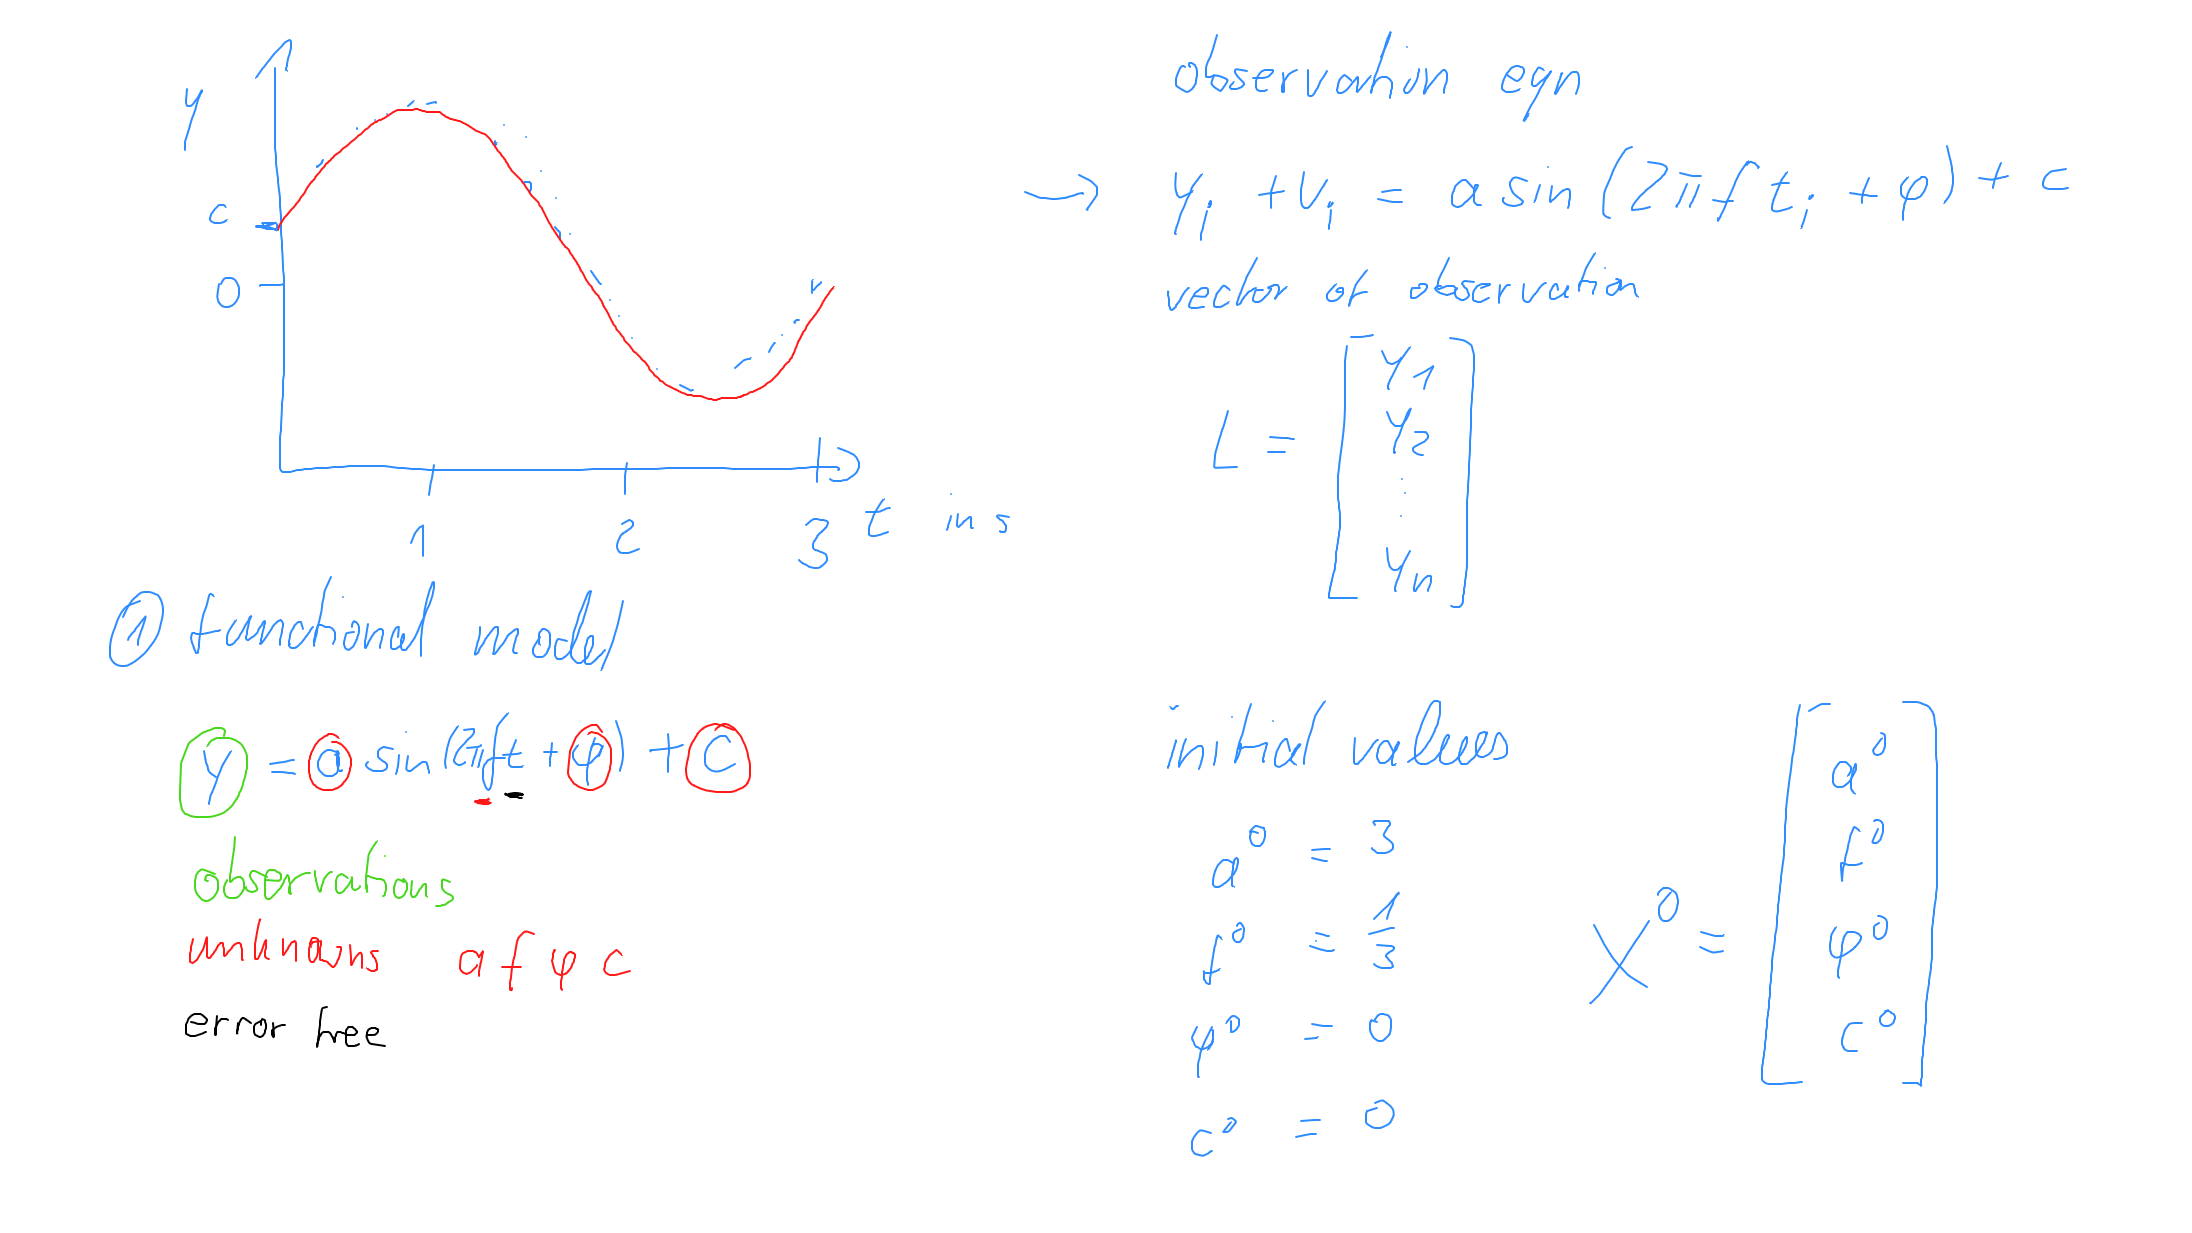 y
c
0
1 2 3 t in s
① functional model
y = a sin(2πft + φ) + c
observations
unknowns a f φ c
error free
observation eqn
→ yᵢ + vᵢ = a sin (2πf tᵢ + φ) + c
vector of observation
L = [ y₁
y₂
⋮
yₙ ]
initial values
a⁰ = 3
f⁰ = 1/3
φ⁰ = 0
c⁰ = 0
X⁰ = [ a⁰
f⁰
φ⁰
c⁰ ]